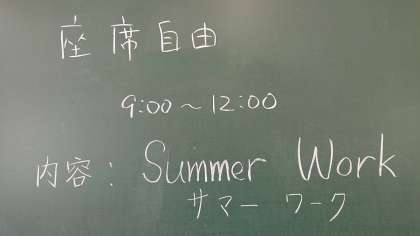 座席自由
9:00～12:00
内容: Summer Work
サマー ワーク